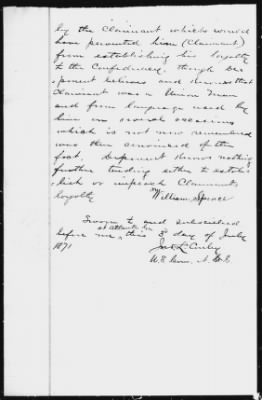 by the Claimant which would
have prevented him (Claimant)
from establishing his loyalty
to the Confederacy. though De-
ponent believes and knows that
Claimant was a Union man
and from language used by
him on several occasions
which is not now remembered
was then convinced of the
fact. Deponent knows nothing
further tending either to estab-
lish or impeach Claimants
loyalty
William Spence
Sworn to and subscribed
before me, at Atlanta Ga this 3d day of July
1871